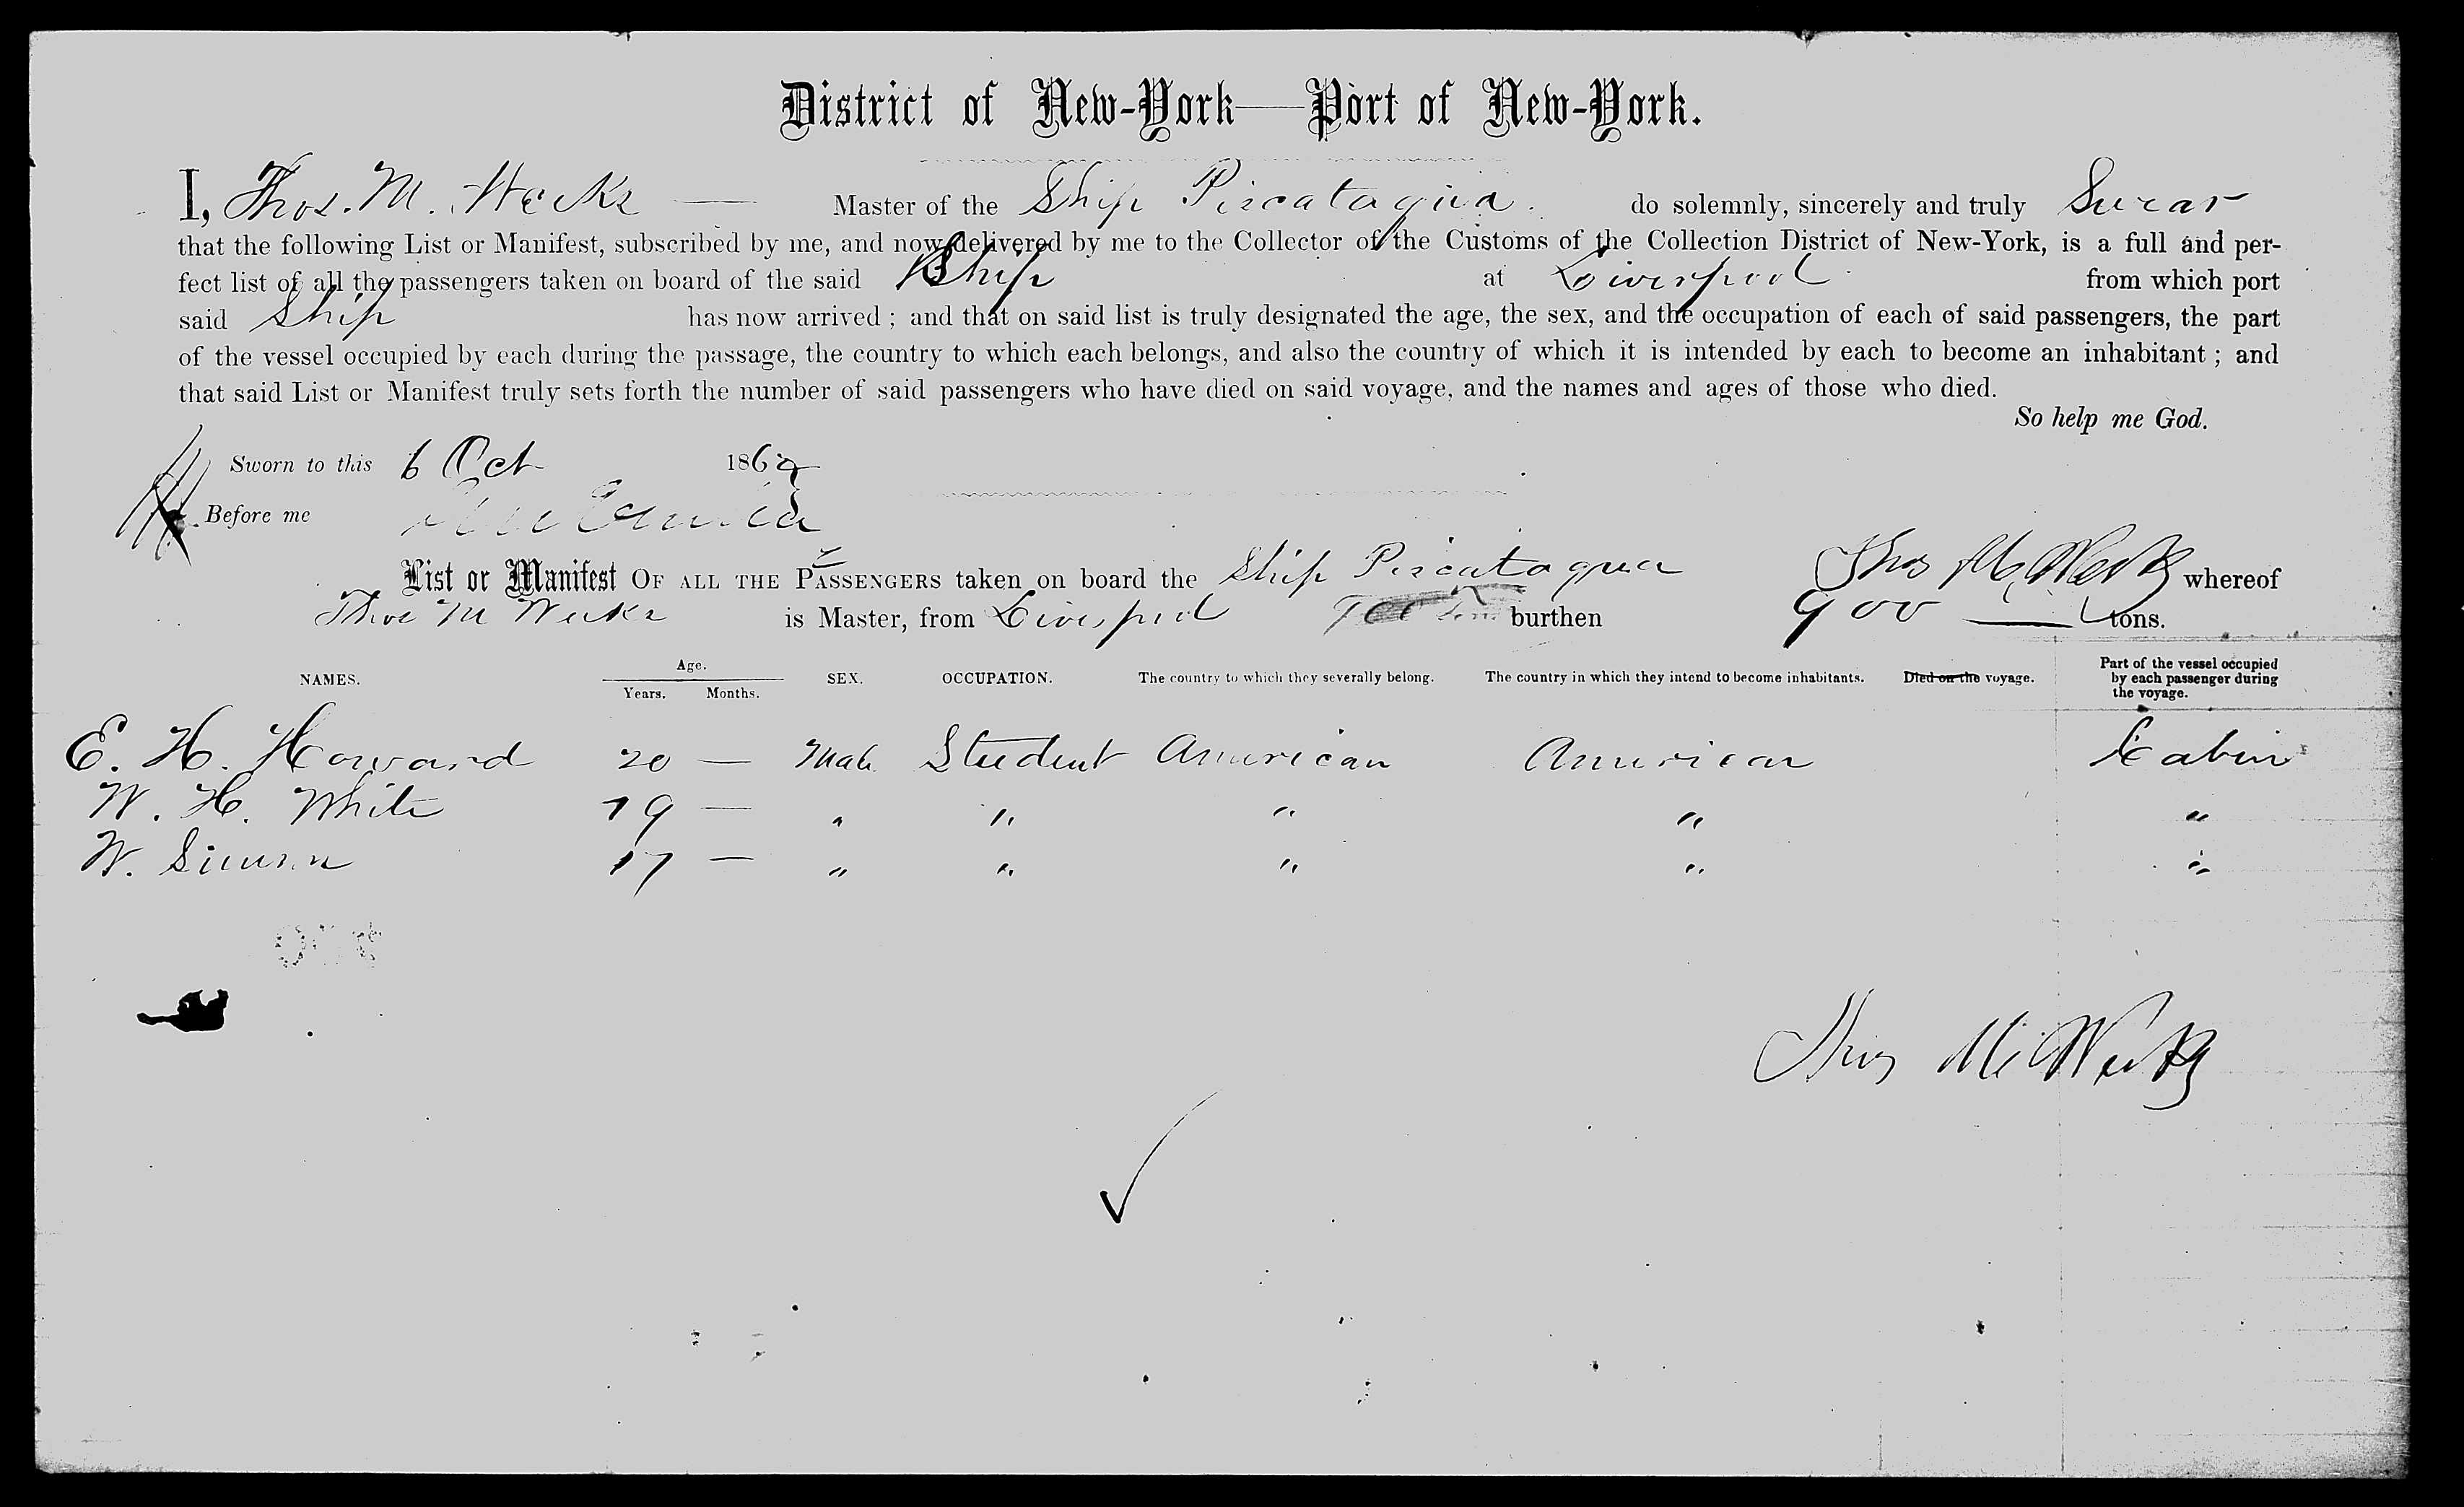 District of New-York—Port of New-York.
I, Thos. M. Weeks — Master of the Ship Piscataqua. do solemnly, sincerely and truly Swear
that the following List or Manifest, subscribed by me, and now delivered by me to the Collector of the Customs of the Collection District of New-York, is a full and per-
fect list of all the passengers taken on board of the said Ship at Liverpool from which port
said Ship has now arrived ; and that on said list is truly designated the age, the sex, and the occupation of each of said passengers, the part
of the vessel occupied by each during the passage, the country to which each belongs, and also the country of which it is intended by each to become an inhabitant ; and
that said List or Manifest truly sets forth the number of said passengers who have died on said voyage, and the names and ages of those who died.
So help me God.
Sworn to this 6 Oct 1862
Before me
Thos M. Weeks
List or Manifest OF ALL THE PASSENGERS taken on board the Ship Piscataqua whereof
Thos M Weeks is Master, from Liverpool burthen 900 — tons.
NAMES. Age. Years. Months. SEX. OCCUPATION. The country to which they severally belong. The country in which they intend to become inhabitants. Died on the voyage. Part of the vessel occupied by each passenger during the voyage.
E. H. Harvard 20 — Male Student American American Cabin
W. H. White 19 — " " " " "
W. 17 — " " " " "
Thos M. Weeks